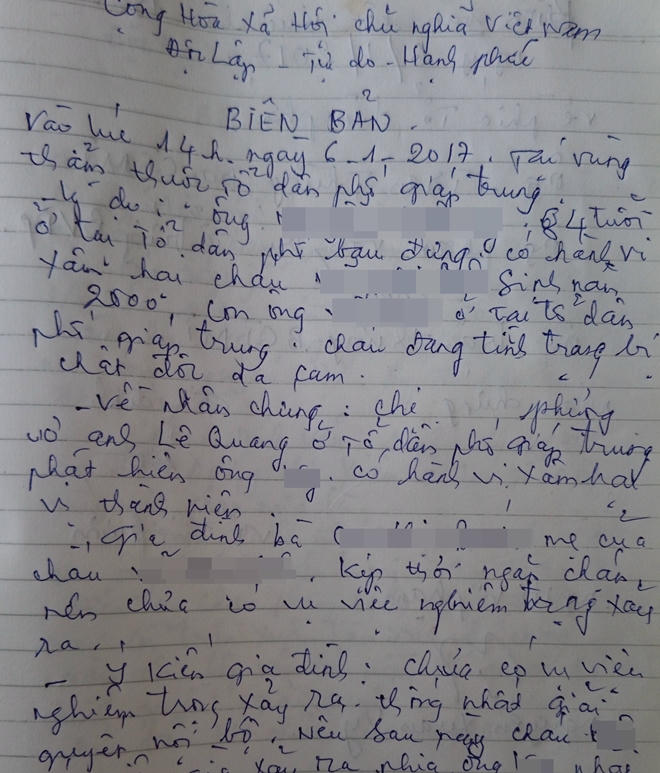 Cộng Hòa Xã Hội chủ nghĩa Việt Nam
Độc Lập - Tự do - Hạnh phúc
BIÊN BẢN.
Vào lúc 14h. ngày 6-1-2017. Tại vùng
thẩm thuộc tổ dân phố giáp trung.
- Lý do: ông 84 tuổi
ở tại Tổ dân phố Bàu đưng có hành vi
xâm hại cháu Sinh năm
2000, con ông ở tại tổ dân
phố giáp trung. cháu đang tình trạng bị
chất độc da cam.
- Về nhân chứng: chị phụng
vợ anh Lê Quang ở Tổ dân phố giáp trung
phát hiện ông có hành vi xâm hại
vị thành niên.
- Gia đình bà mẹ của
cháu kịp thời ngăn chặn,
nên chưa có vụ việc nghiêm trọng xảy
ra.
- Ý kiến gia đình: chưa có vụ việc
nghiêm trọng xảy ra. thống nhất giải
quyết nội bộ. nếu sau này cháu
xảy ra phía ông